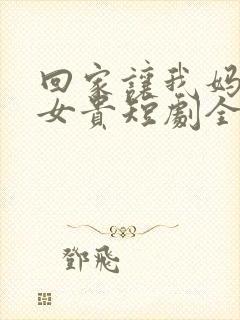 回家讓我媽
女貴短劇全
鄧飛